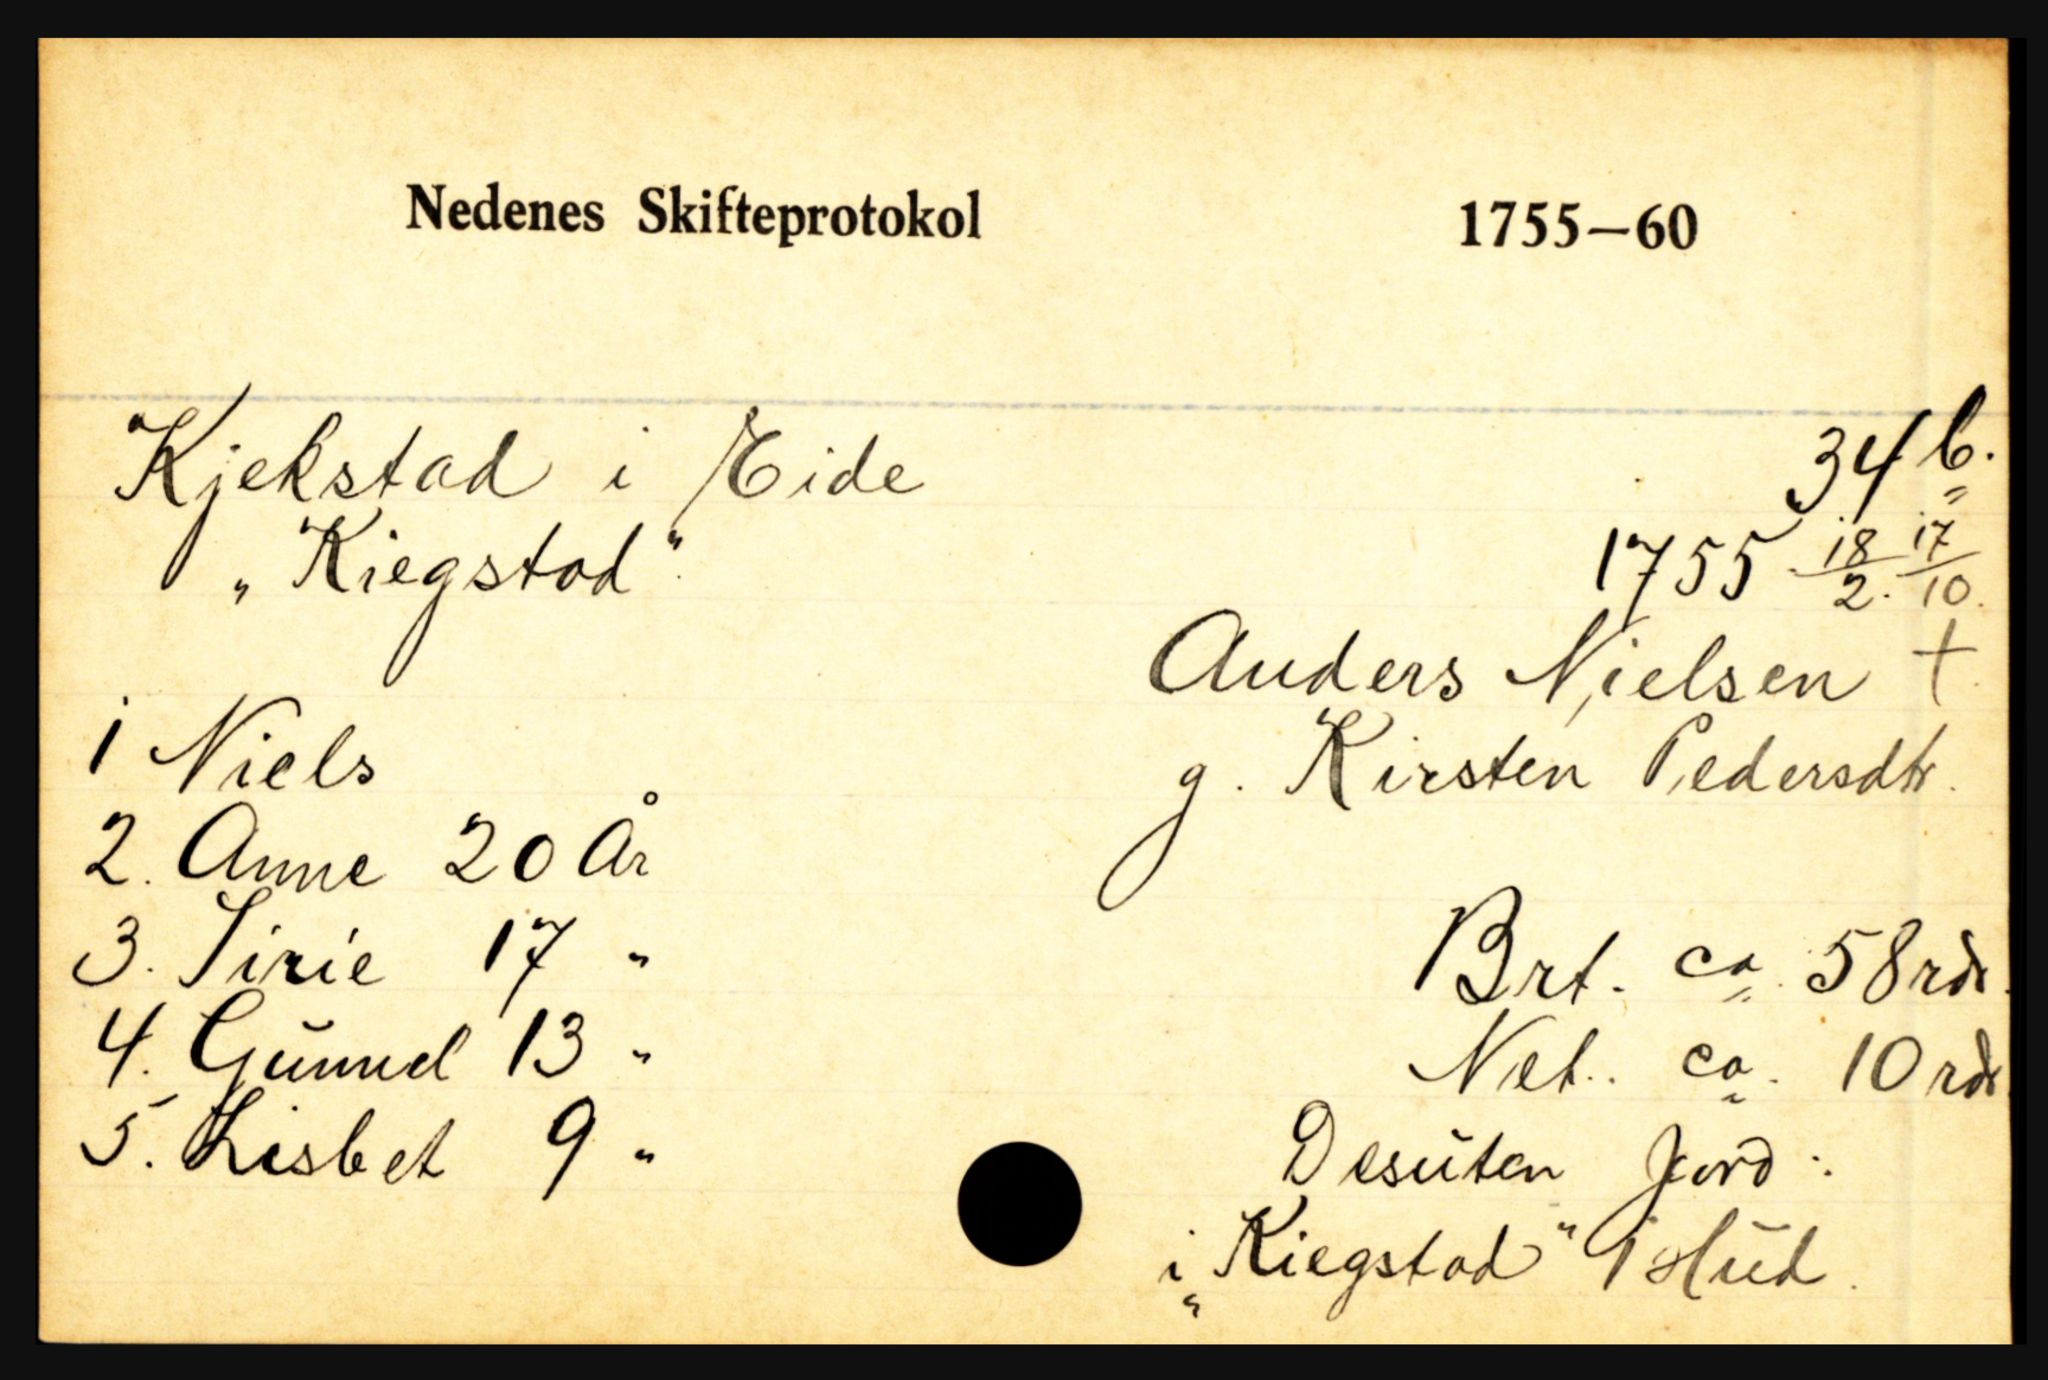 Nedenes Skifteprotokol 1755—60
Kjekstad i Eide 34 b.
„Kiegstad" 1755 18/2. 17/10.
Anders Nielsen †
g. Kirsten Pedersdtr.
1 Niels
2. Anne 20 År
3. Sirie 17 "
4. Gŭnnel 13 "
5. Lisbet 9 "
Brt. ca. 58 rdr.
Net. ca. 10 rdr
Desŭten Jord:
i „Kiegstad" 1 Hŭd.